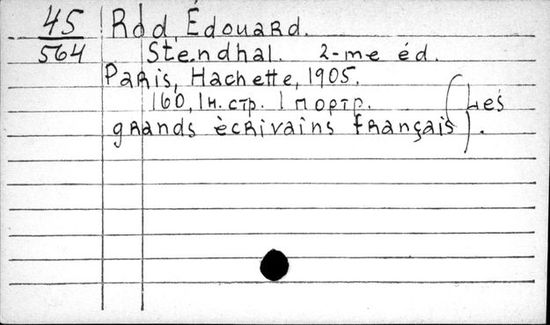 45 Rod, Édouard.
564 Stendhal. 2-me éd.
Paris, Hachette, 1905.
160, 1 н. стр. 1 портр. (Les
grands ècrivains français).